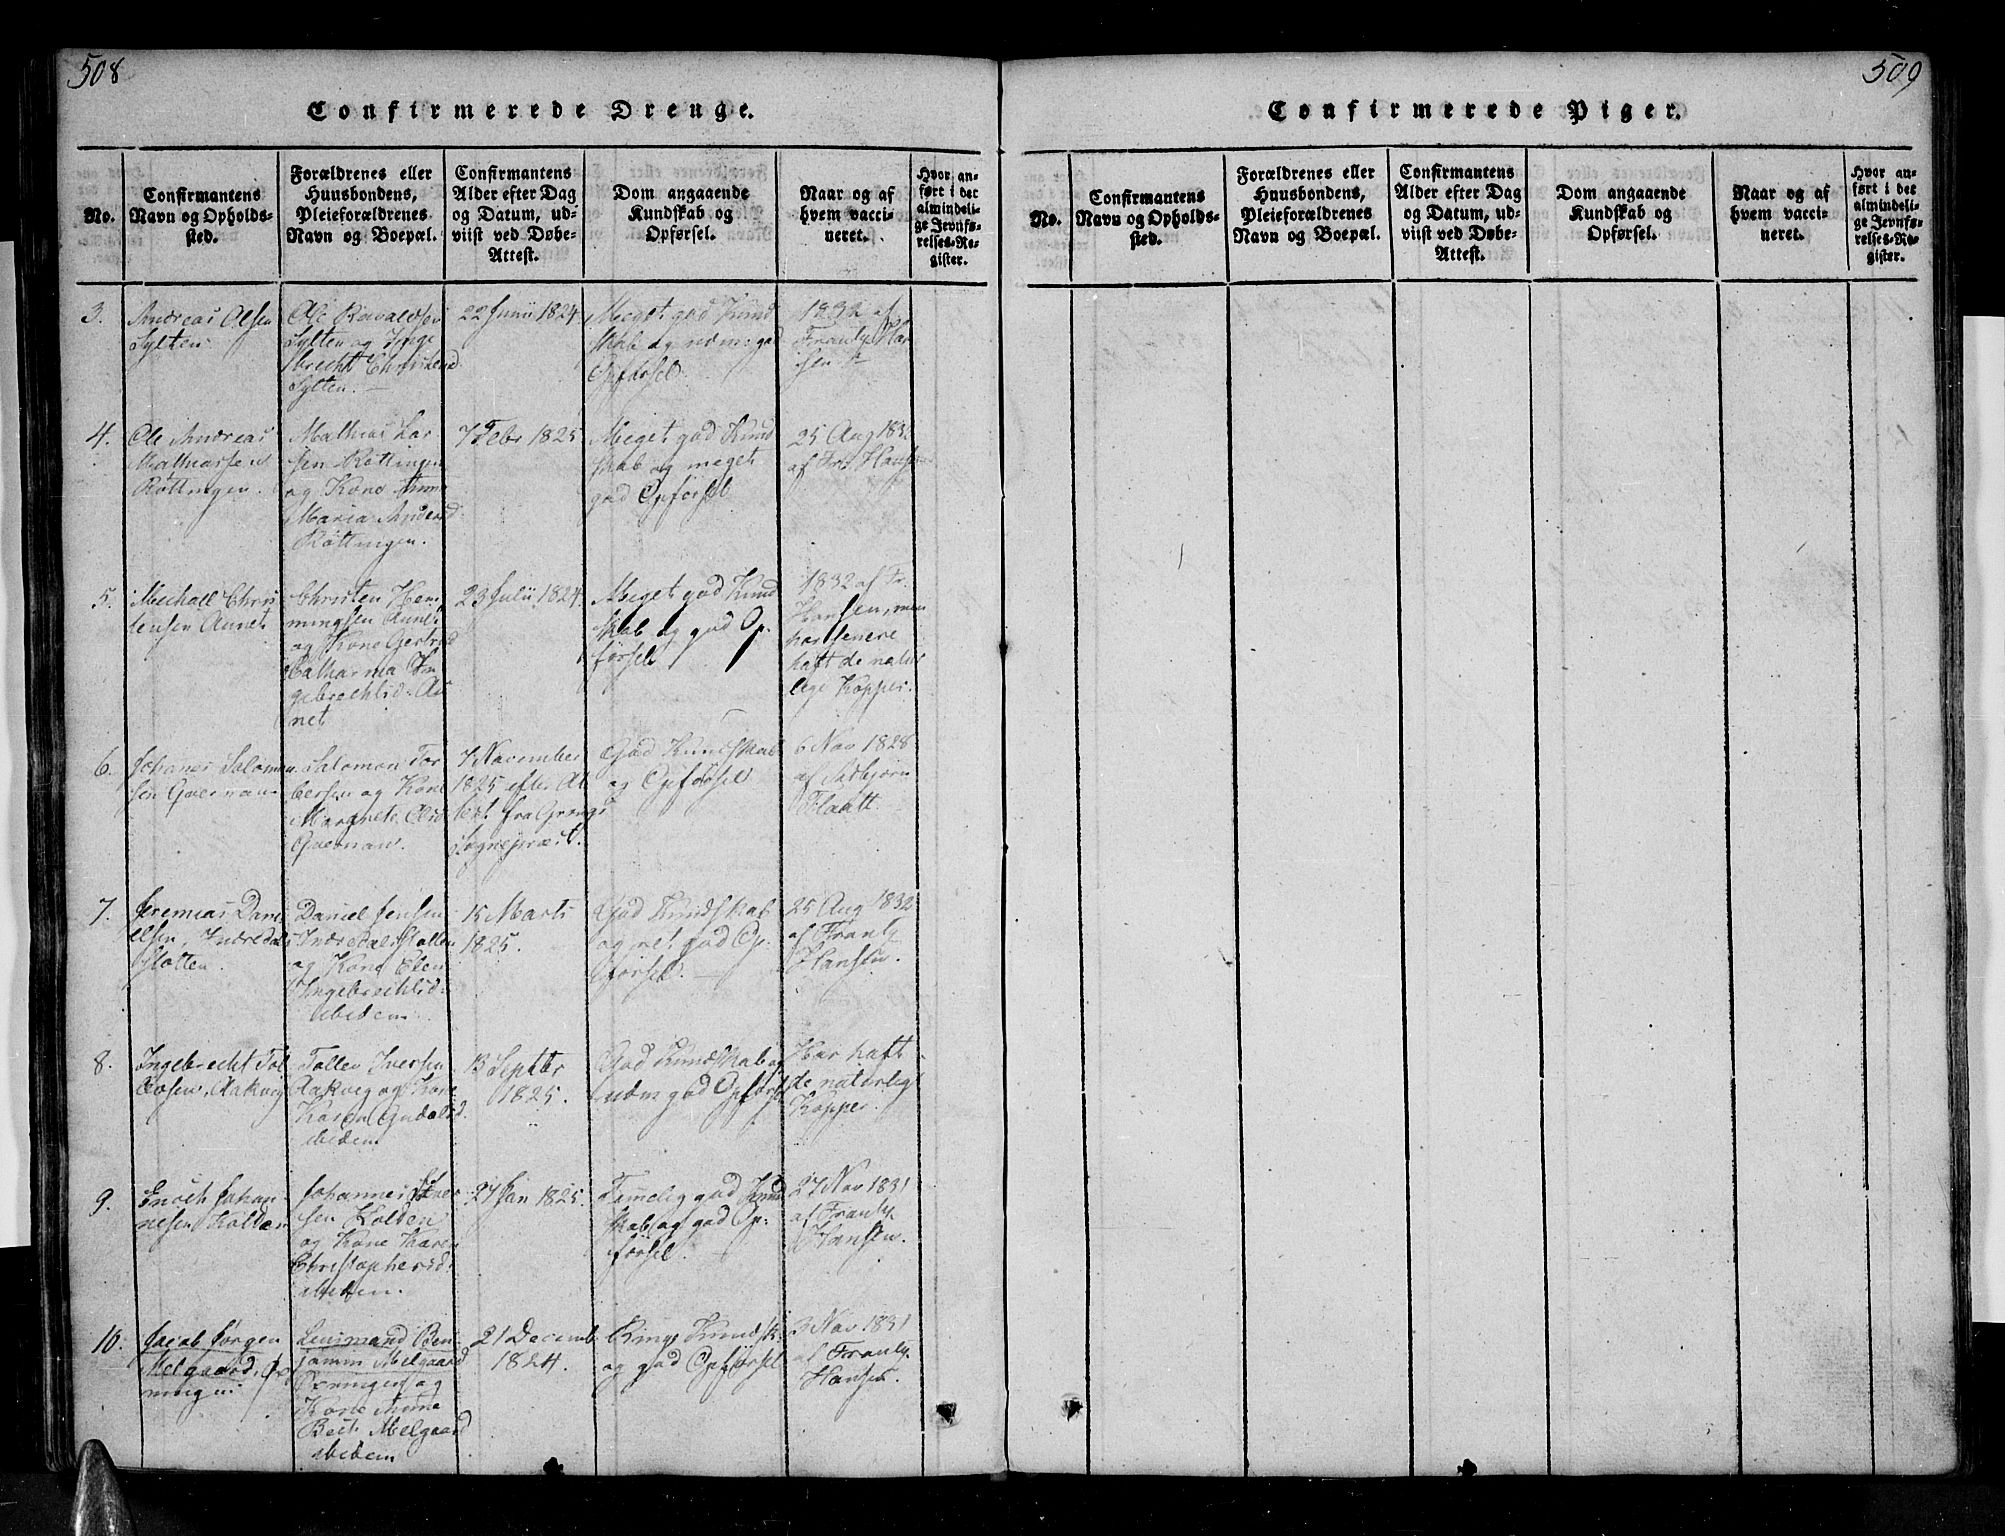 508
Confirmerede Drenge.
No.
Confirmantens
Navn og Opholds-
sted.
Forældrenes eller
Huusbondens,
Pleieforældrenes
Navn og Boepæl.
Confirmantens
Alder efter Dag
og Datum, ud-
viist ved Døbe-
Attest.
Dom angaaende
Kundskab og
Opførsel.
Naar og af
hvem vacci-
neret.
Hvor an-
ført i det
almindeli-
ge Jevnfø-
relses-Re-
gister.
3.
Andreas Olsen
Sylten
Ole Ravaldsen
Sylten og Inge
brecht Christensd
Sylten.
22 Junii 1824
Meget god Kund
skab og udm: god
Opførsel
1832 af
Frantz Han
sen
4.
Ole Andreas
Mathiassen
Røttingen.
Mathias Lar
sen Røttingen
og Kone Anne
Maria Andersd
Røttingen.
7 Febr 1825
Meget god Kund
skab og meget
god Opførsel
25 Aug 183
af Fr: Hansen
5.
Michael Chris
tensen Aunet
Christen Hem
mingsen Aunet
og Kone Gertrud
Catharina In
gebrechtsd: Au
net
23 Julii 1824.
Meget god Kund
skab og god Op.
førsel
1832 af Fr.
Hansen, men
har senere
haft de natur
lige Kopper.
6.
Johanes Salomon
sen Qvernan
Salomon Tor
bersen og Kone
Margrete Olsd
Qvernan.
7 November
1825 efter At
test fra Grongs
Sognepræst.
God Kundskab
og Opførsel
6 Nov 1828
af Asbjørn
Flaatt.
7.
Jeremias Dani
elsen, Indredals
slotten.
Daniel Jensen
Indredalsslotten
og Kone Elen
Ingebrechtsd:
ibidem
15 Marts
1825.
God Kundskab
og ret god Op.
førsel.
25 Aug 1832
af Frantz
Hansen.
8.
Ingebrecht Tol
levsen, Aakvig
Tollev Iversen
Aakvig og Kone
Karen Gudalsd.
ibidem
13 Septbr
1825.
God Kundskab og
udm god Opførsel
Har haft
de naturlig
Kopper.
9.
Enoch Johan
nesen Kolden
Johannes Iver
sen Kolden
og Kone Karen
Christophersd:
ibidem.
27 Jan 1825.
Temelig god Kund
skab og god Op:
førsel.
27 Nov 1831
af Frantz
Hansen.
10.
Jacob Jørgen
Melgaard, Ox
ningen
Lensmand Ben
jamin Melgaard
Oxningen og
Kone Anne
Berit Melgaard
ibidem
21 Decemb
1824.
Ringe Kundsk.
og god Opførsel
3 Nov 1831
af Frantz
Hansen.
509
Confirmerede Piger.
No.
Confirmantens
Navn og Opholds-
sted.
Forældrenes eller
Huusbondens,
Pleieforældrenes
Navn og Boepæl.
Confirmantens
Alder efter Dag
og Datum, ud-
viist ved Døbe-
Attest.
Dom angaaende
Kundskab og
Opførsel.
Naar og af
hvem vacci-
neret.
Hvor an-
ført i det
almindeli-
ge Jevnfø-
relses-Re-
gister.